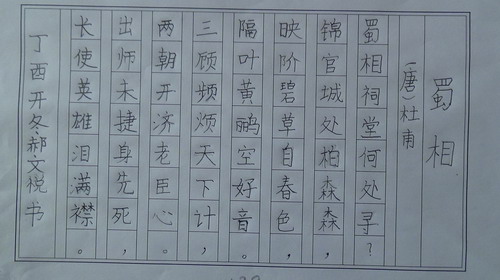 蜀相
（唐）杜甫
蜀相祠堂何处寻？
锦官城处柏森森，
映阶碧草自春色，
隔叶黄鹂空好音。
三顾频烦天下计，
两朝开济老臣心。
出师未捷身先死，
长使英雄泪满襟。
丁酉开冬郝文悦书